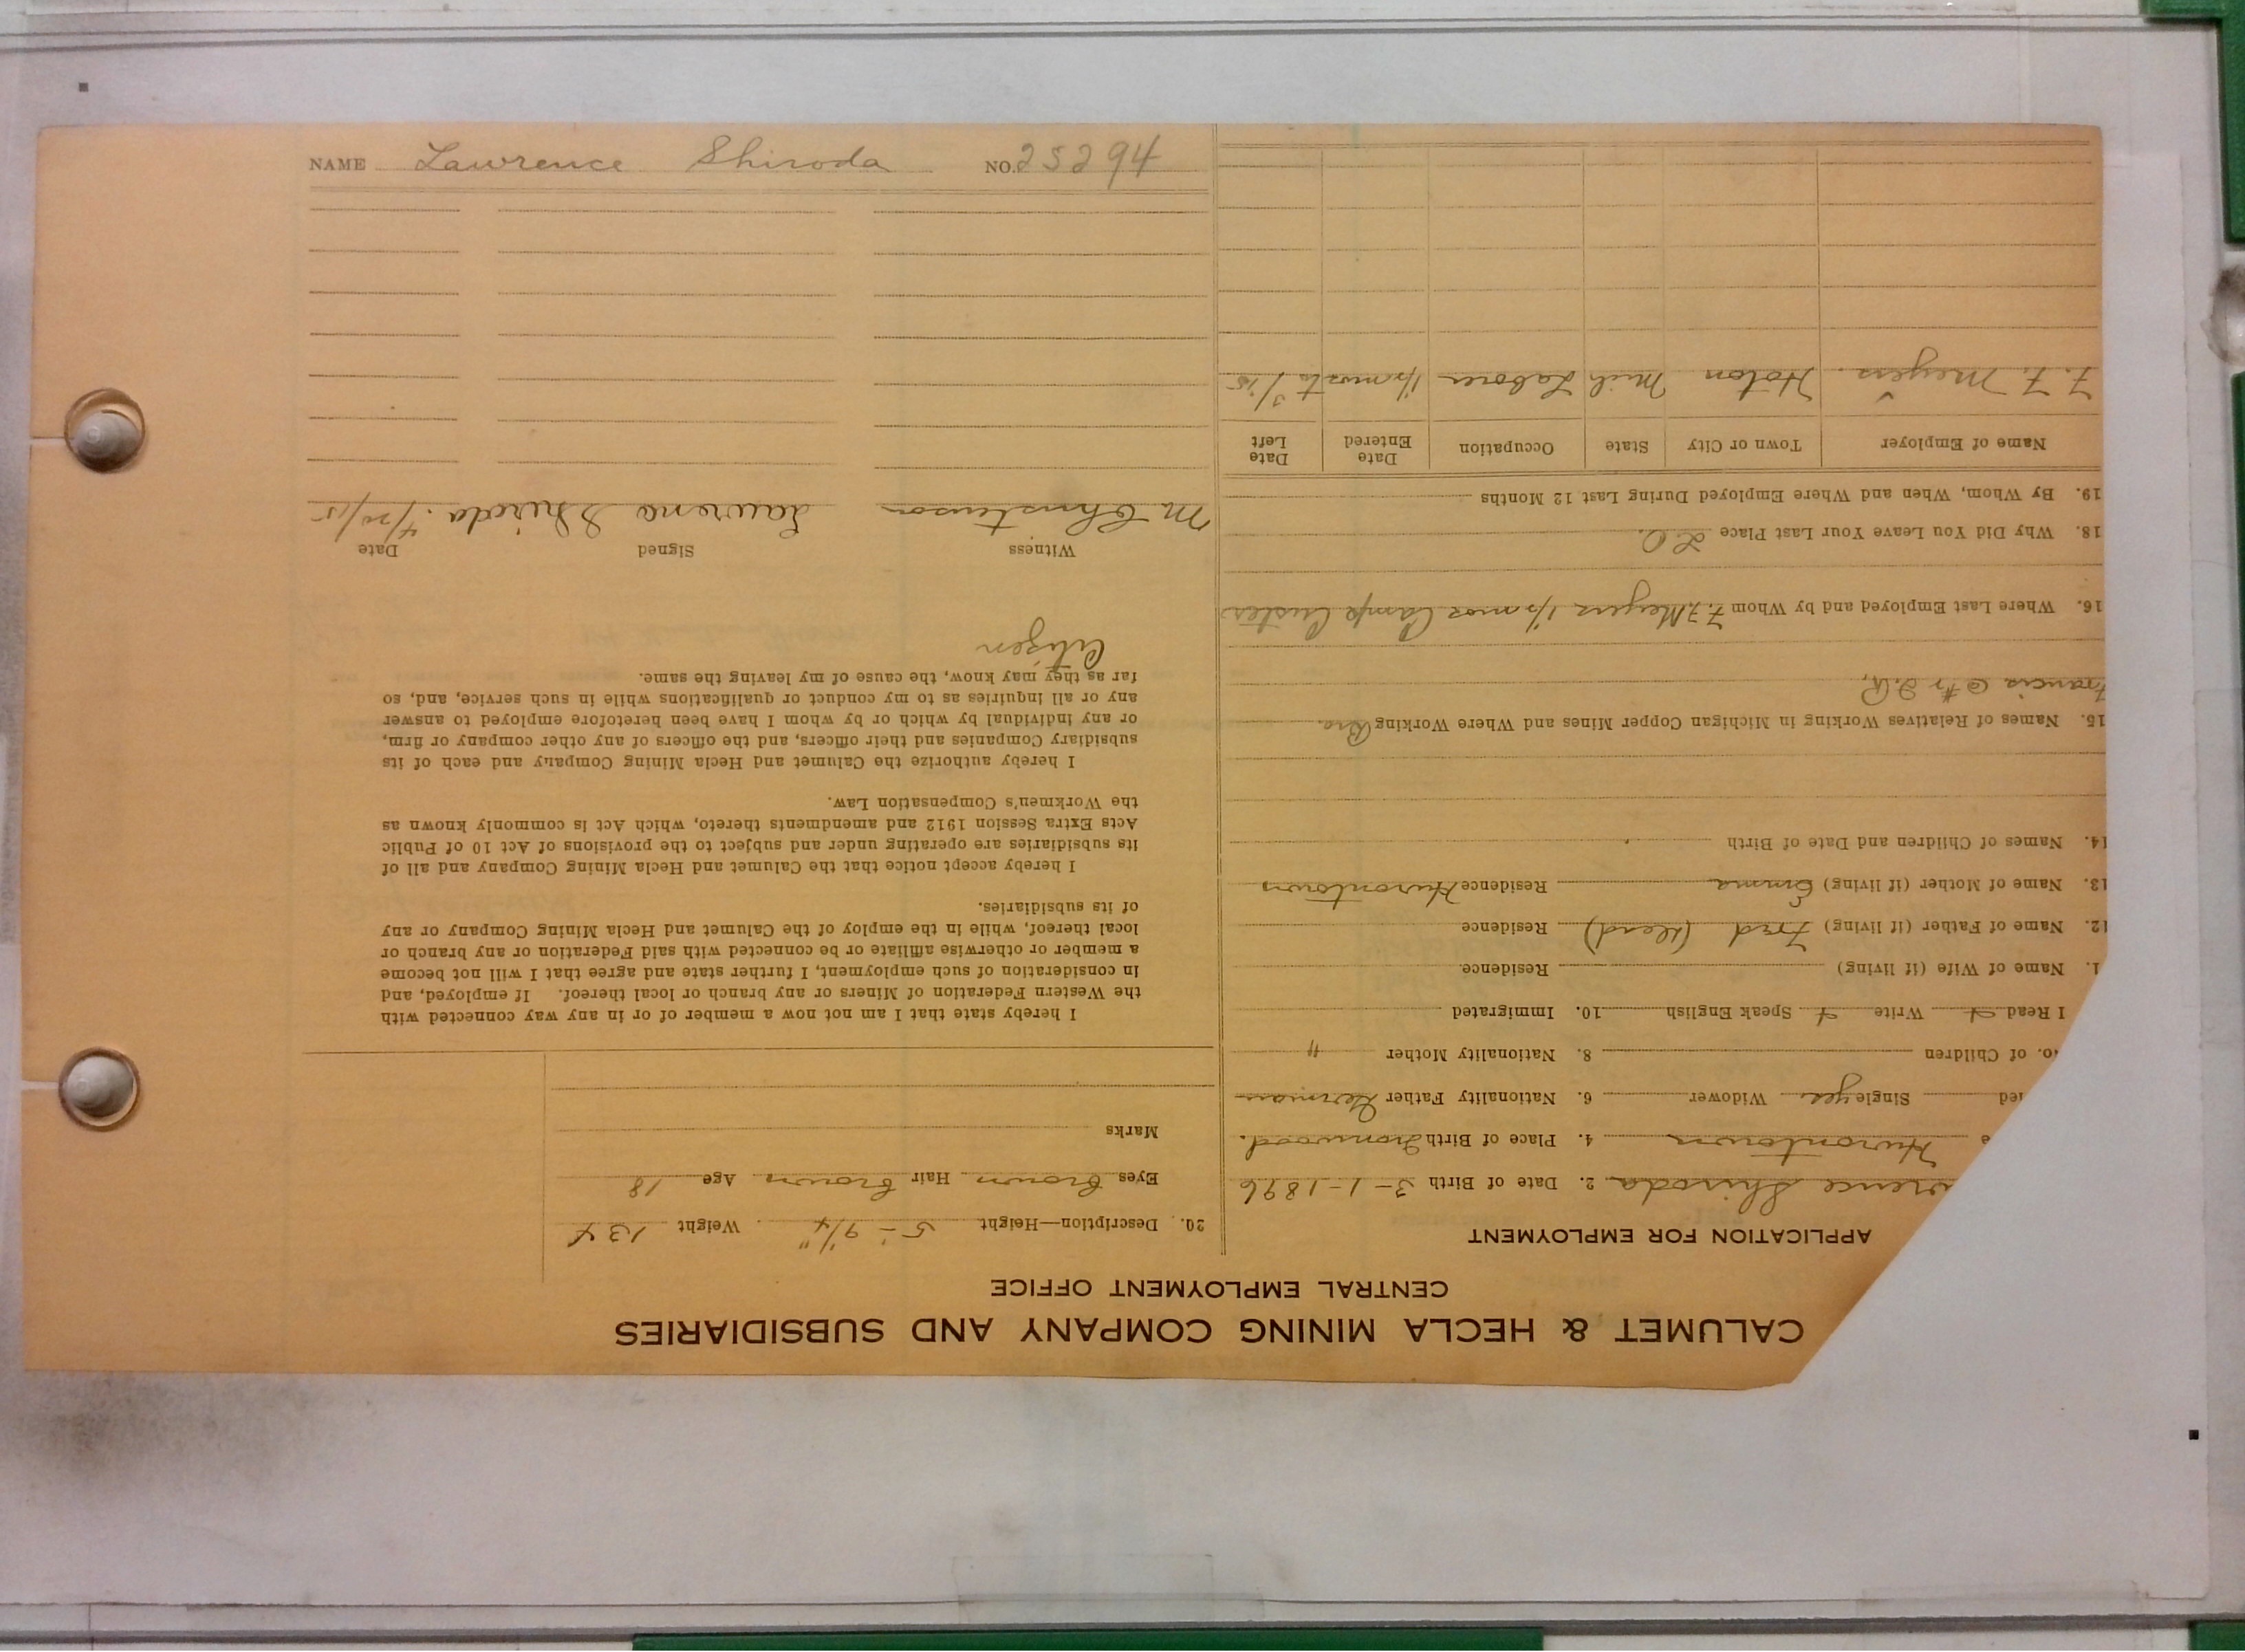 NAME Lawrence Shiroda NO. 25294
CALUMET & HECLA MINING COMPANY AND SUBSIDIARIES
CENTRAL EMPLOYMENT OFFICE
APPLICATION FOR EMPLOYMENT
rence Shiroda 2. Date of Birth 3-1-1896
e Hurontown 4. Place of Birth Ironwood.
ied Single yes Widower 6. Nationality Father German
o. of Children 8. Nationality Mother "
I Read Write Speak English 10. Immigrated
1. Name of Wife (if living) Residence
12. Name of Father (if living) Fred (Dead) Residence
13. Name of Mother (if living) Emma Residence Hurontown
14. Names of Children and Date of Birth
15. Names of Relatives Working in Michigan Copper Mines and Where Working Bro
Francis @ #2 I.R,
16. Where Last Employed and by Whom F.F. Meyers 1½ mos Camp Custer
18. Why Did You Leave Your Last Place
19. By Whom, When and Where Employed During Last 12 Months
Name of Employer Town or City State Occupation Date Entered Date Left
F. F. Meyers. Hoton Mich Laborer 1½ mos to /15
20. Description—Height 5-9¼" Weight 134
Eyes Brown Hair Brown Age 18
Marks
I hereby state that I am not now a member of or in any way connected with
the Western Federation of Miners or any branch or local thereof. If employed, and
in consideration of such employment, I further state and agree that I will not become
a member or otherwise affiliate or be connected with said Federation or any branch or
local thereof, while in the employ of the Calumet and Hecla Mining Company or any
of its subsidiaries.
I hereby accept notice that the Calumet and Hecla Mining Company and all of
its subsidiaries are operating under and subject to the provisions of Act 10 of Public
Acts Extra Session 1912 and amendments thereto, which Act is commonly known as
the Workmen's Compensation Law.
I hereby authorize the Calumet and Hecla Mining Company and each of its
subsidiary Companies and their officers, and the officers of any other company or firm,
or any individual by which or by whom I have been heretofore employed to answer
any or all inquiries as to my conduct or qualifications while in such service, and, so
far as they may know, the cause of my leaving the same.
Citizen
Witness Signed Date
M Christenson Lawrenc Shiroda. 4/20/15